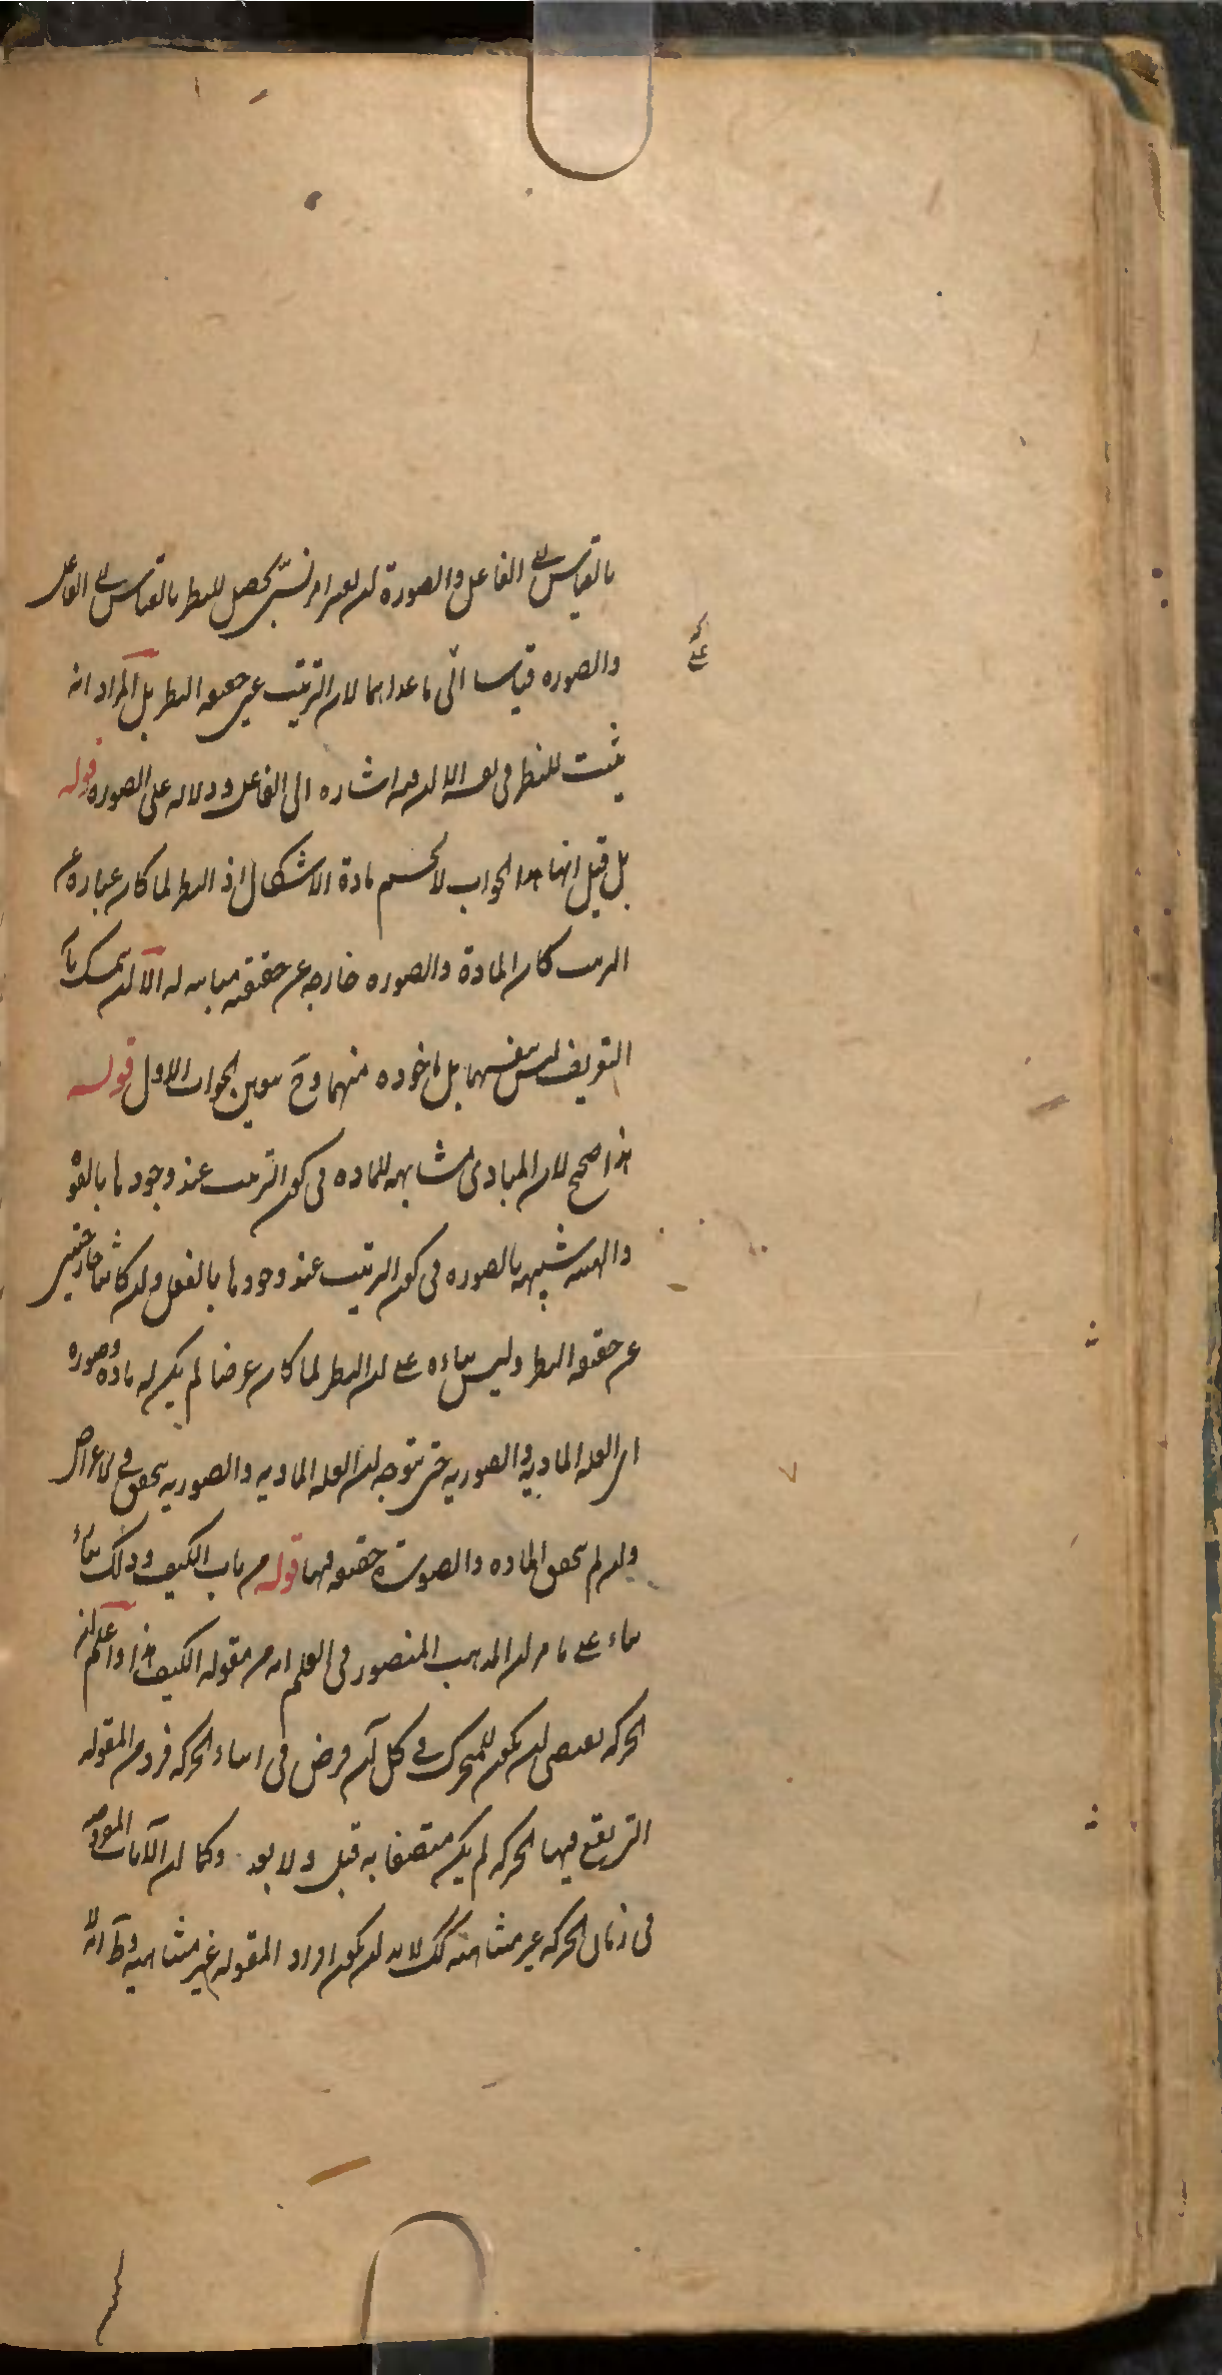 بالقياس الى الفاعل والصورة لان لعبر امر نسبي يحصل للنظر بالقياس الى الفاعل
والصوره قياسا الى ما عداهما لان الترتيب عين حقيقه النظر بل المراد انه
يثبت للنظر في نفسه الا ان فيه اشاره الى الفاعل ودلاله على الصوره قوله
بل قيل انها هذا الجواب لا يحسم مادة الاشكال اذ النظر لما كان عباره عن
الترتيب كان المادة والصوره خارجه عن حقيقته مباينه له الا ان يتمسك بان
التعريف ليس بنفسهما بل ماخوذه منهما وح هو عين الجواب الاول قوله
هذا صحيح لان المبادى مشابهه للماده في كون الترتيب عند وجودها بالقوة
والهيئه شبيهه بالصوره في كون الترتيب عند وجودها بالفعل وان كانتا خارجتين
عن حقيقه النظر وليس بناءه على ان النظر لما كان عرضا لم يكن له ماده وصوره
اى العله الماديه والصوريه حتى يتوجه ان العله الماديه والصوريه يتحقق في الاعراض
وان لم يتحقق الماده والصورة حقيقه فيها قوله من باب الكيف وذلك بناء
بناء على ما مر ان المذهب المنصور في العلم انه من مقوله الكيف هذا واعلم ان
الحركه يقتضى ان يكون للمتحرك في كل آن فرض في اثناء الحركه فرد من المقوله
التي يقع فيها الحركه لم يكن متصفا به قبل ولا بعد وكما ان الآنات المفروضه
في زمان الحركه غير متناهيه كك لابد ان يكون افراد المقوله غير متناهيه وظ انه لا